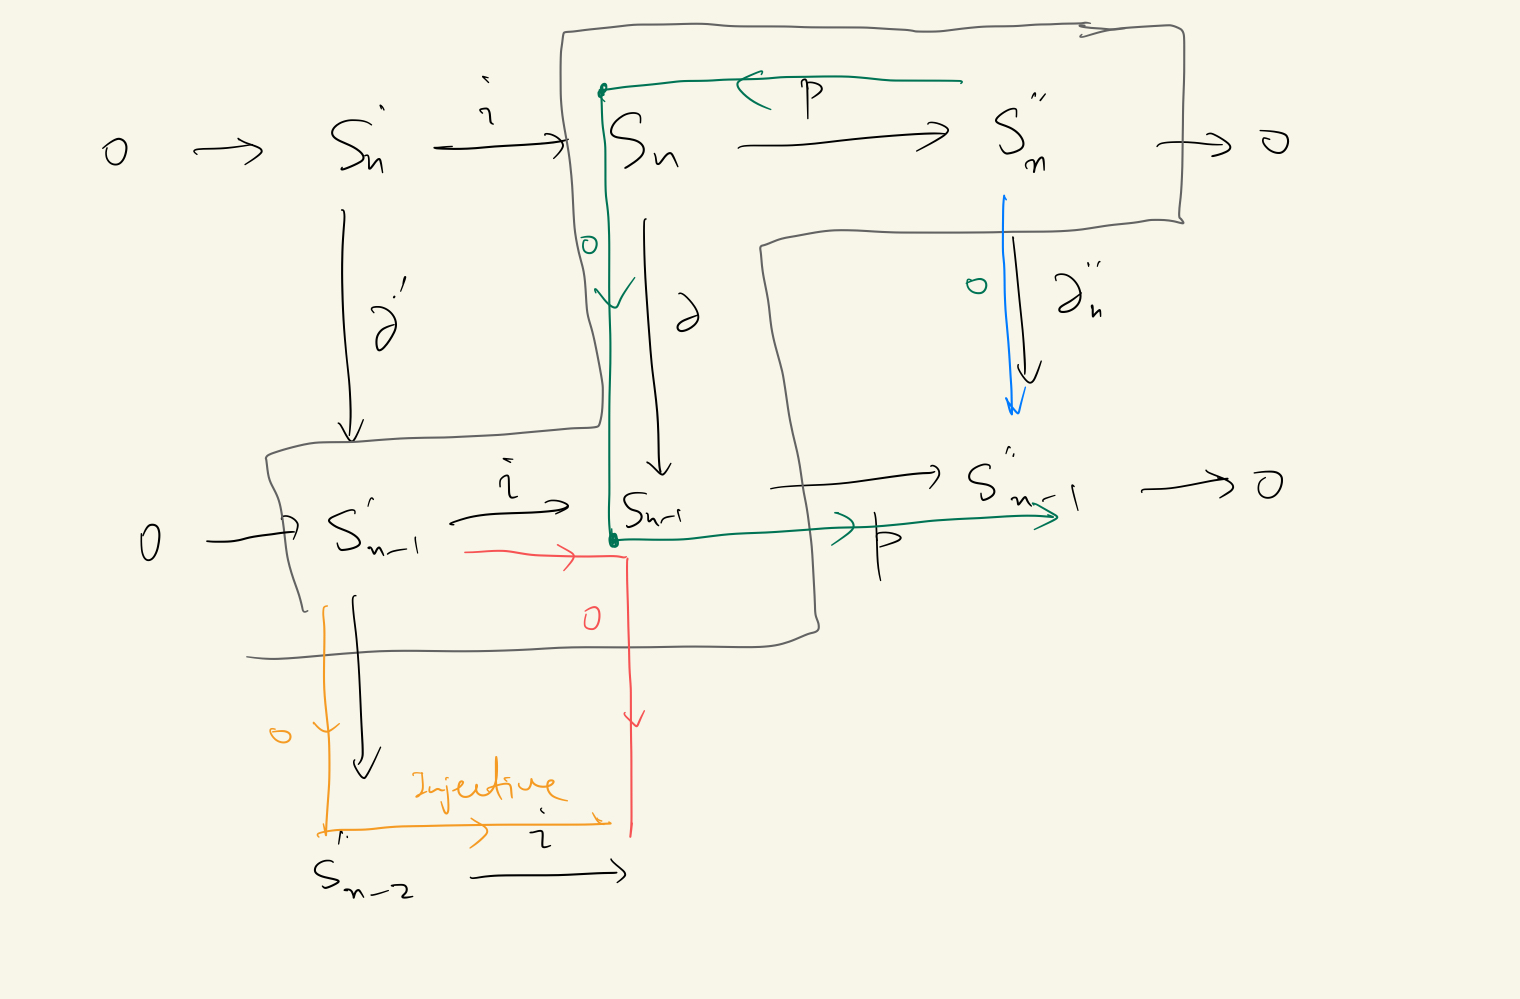 i p
0 → S'ₙ → Sₙ → S''ₙ → 0
0 0
∂' ∂ ∂''ₙ
i
0 → S'ₙ₋₁ → Sₙ₋₁ → S''ₙ₋₁ → 0
p
0
0
Injective
i
S''ₙ₋₂ →